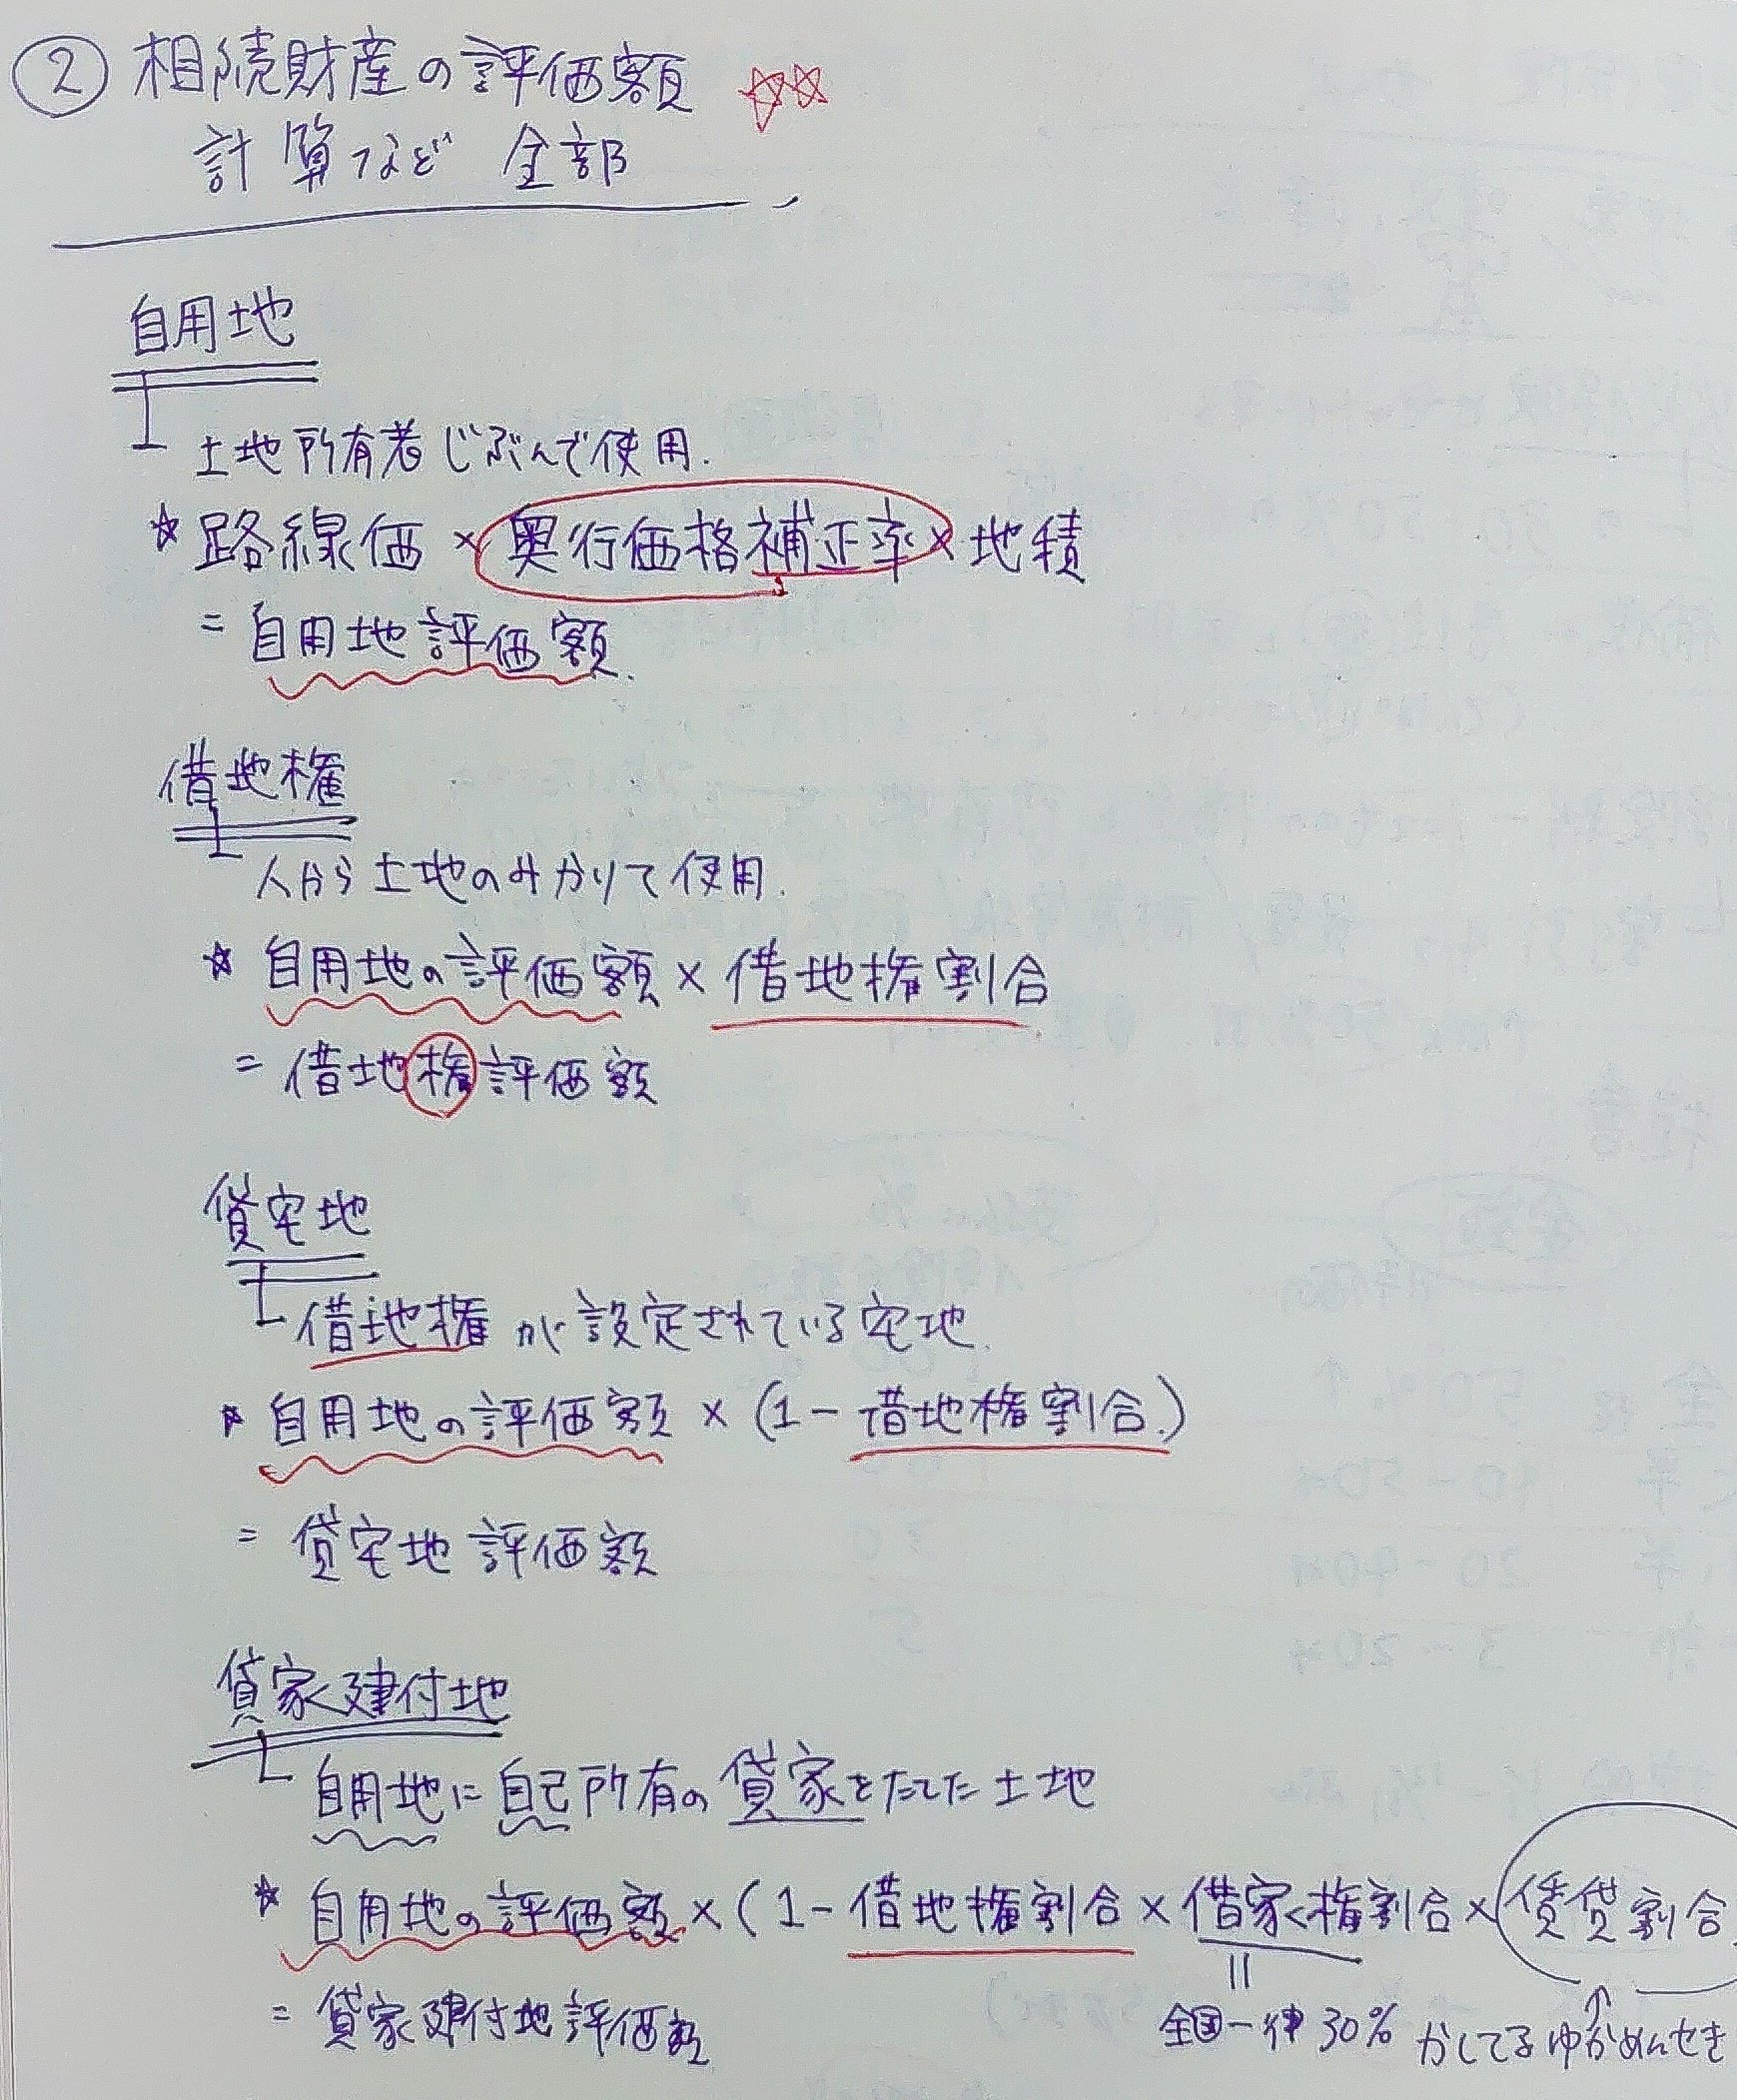 ② 相続財産の評価額 ☆☆
計算など 全部
自用地
土地所有者じぶんで使用.
☆ 路線価 × 奥行価格補正率 × 地積
= 自用地評価額.
借地権
人から土地のみかりて使用.
☆ 自用地の評価額 × 借地権割合
= 借地権評価額
貸宅地
借地権が設定されている宅地.
☆ 自用地の評価額 × (1-借地権割合.)
= 貸宅地評価額
貸家建付地
自用地に自己所有の貸家をたてた土地
☆ 自用地の評価額 × (1-借地権割合 × 借家権割合 × 賃貸割合
= 貸家建付地評価額
全国一律 30% かしてるゆかめんせき